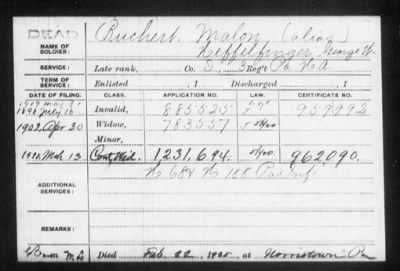 DEAD
NAME OF SOLDIER:
Ruchert Malon (alias)
Heffelfinger, George W.
SERVICE:
Late rank, Co. D, 3 Reg't Pa H A
TERM OF SERVICE:
Enlisted , 1 Discharged , 1
DATE OF FILING. CLASS. APPLICATION NO. LAW. CERTIFICATE NO.
1890 July 16 Invalid, 885525 959992
1903, Apr 30 Widow, 783557
Minor,
1920, Mch 13 Cont. Wid. 1,231,694 962,090.
ADDITIONAL SERVICES:
REMARKS:
Died Feb 22, 1920 at Norristown Pa